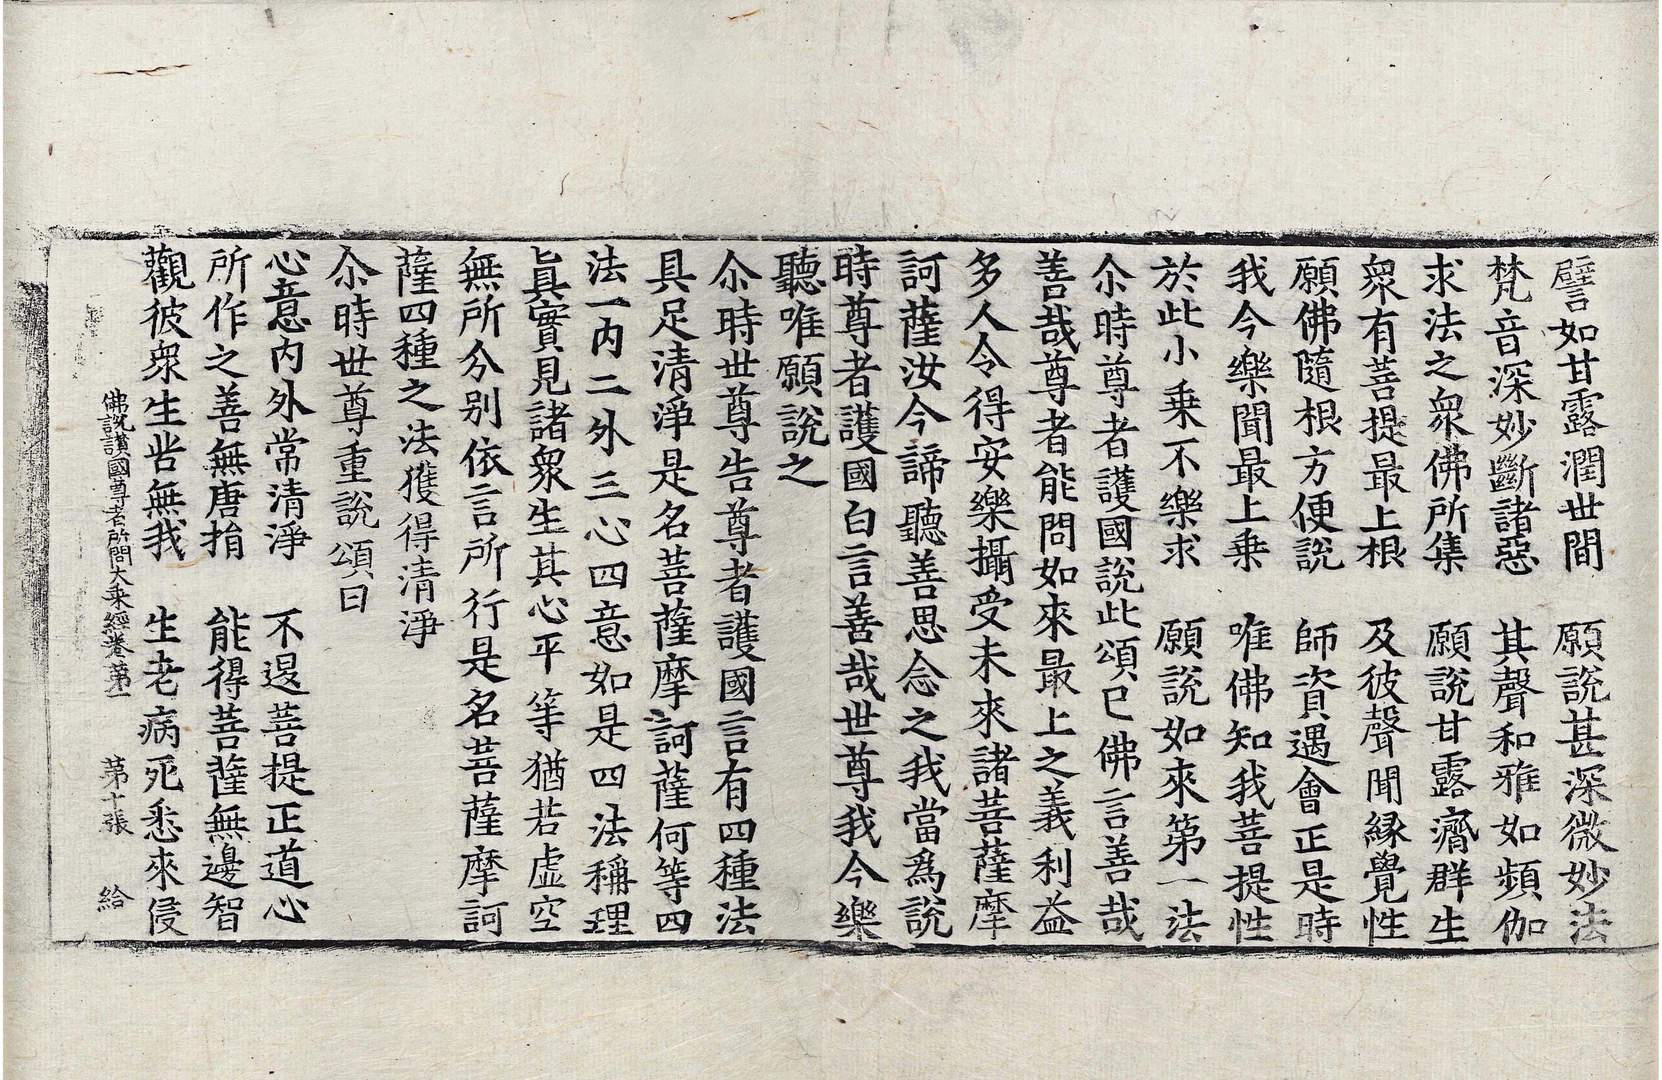 譬如甘露潤世間　願說甚深微妙法
梵音深妙斷諸惡　其聲和雅如頻伽
求法之衆佛所集　願說甘露濟群生
衆有菩提最上根　及彼聲聞緣覺性
願佛隨根方便說　師資遇會正是時
我今樂聞最上乗　唯佛知我菩提性
於此小乗不樂求　願說如來第一法
尒時尊者護國說此頌已佛言善哉
善哉尊者能問如來最上之義利益
多人令得安樂攝受未來諸菩薩摩
訶薩汝今諦聽善思念之我當爲說
時尊者護國白言善哉世尊我今樂
聽唯願說之
尒時世尊告尊者護國言有四種法
具足清淨是名菩薩摩訶薩何等四
法一內二外三心四意如是四法稱理
眞實見諸衆生其心平等猶若虛空
無所分別依言所行是名菩薩摩訶
薩四種之法獲得清淨
尒時世尊重說頌曰
心意內外常清淨　不退菩提正道心
所作之善無唐捐　能得菩薩無邊智
觀彼衆生皆無我　生老病死悉來侵
佛說護國尊者所問大乗經卷第一　第十張　給